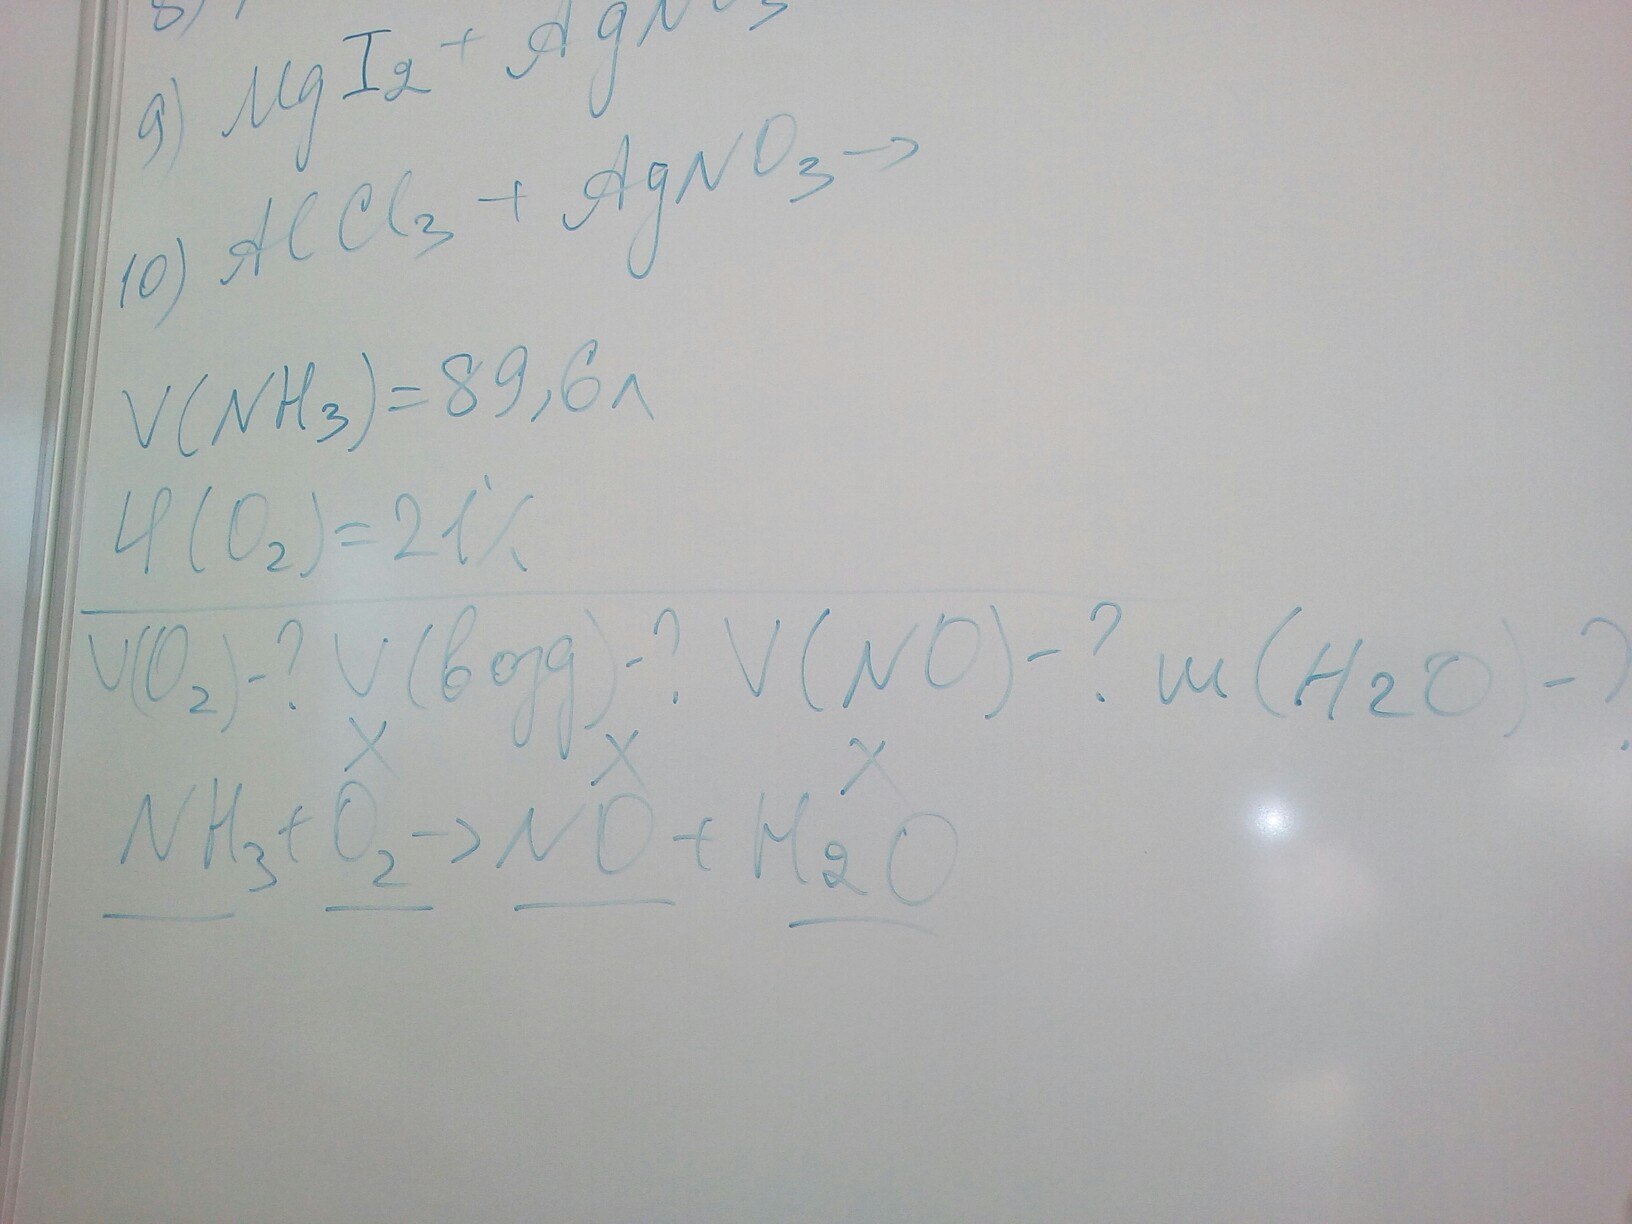 8)
9) MgI2 + AgNO3
10) AlCl3 + AgNO3 →
V(NH3) = 89,6л
φ(O2) = 21%
V(O2)-? V(возд)-? V(NO)-? m(H2O)-?
x x x
NH3 + O2 → NO + H2O